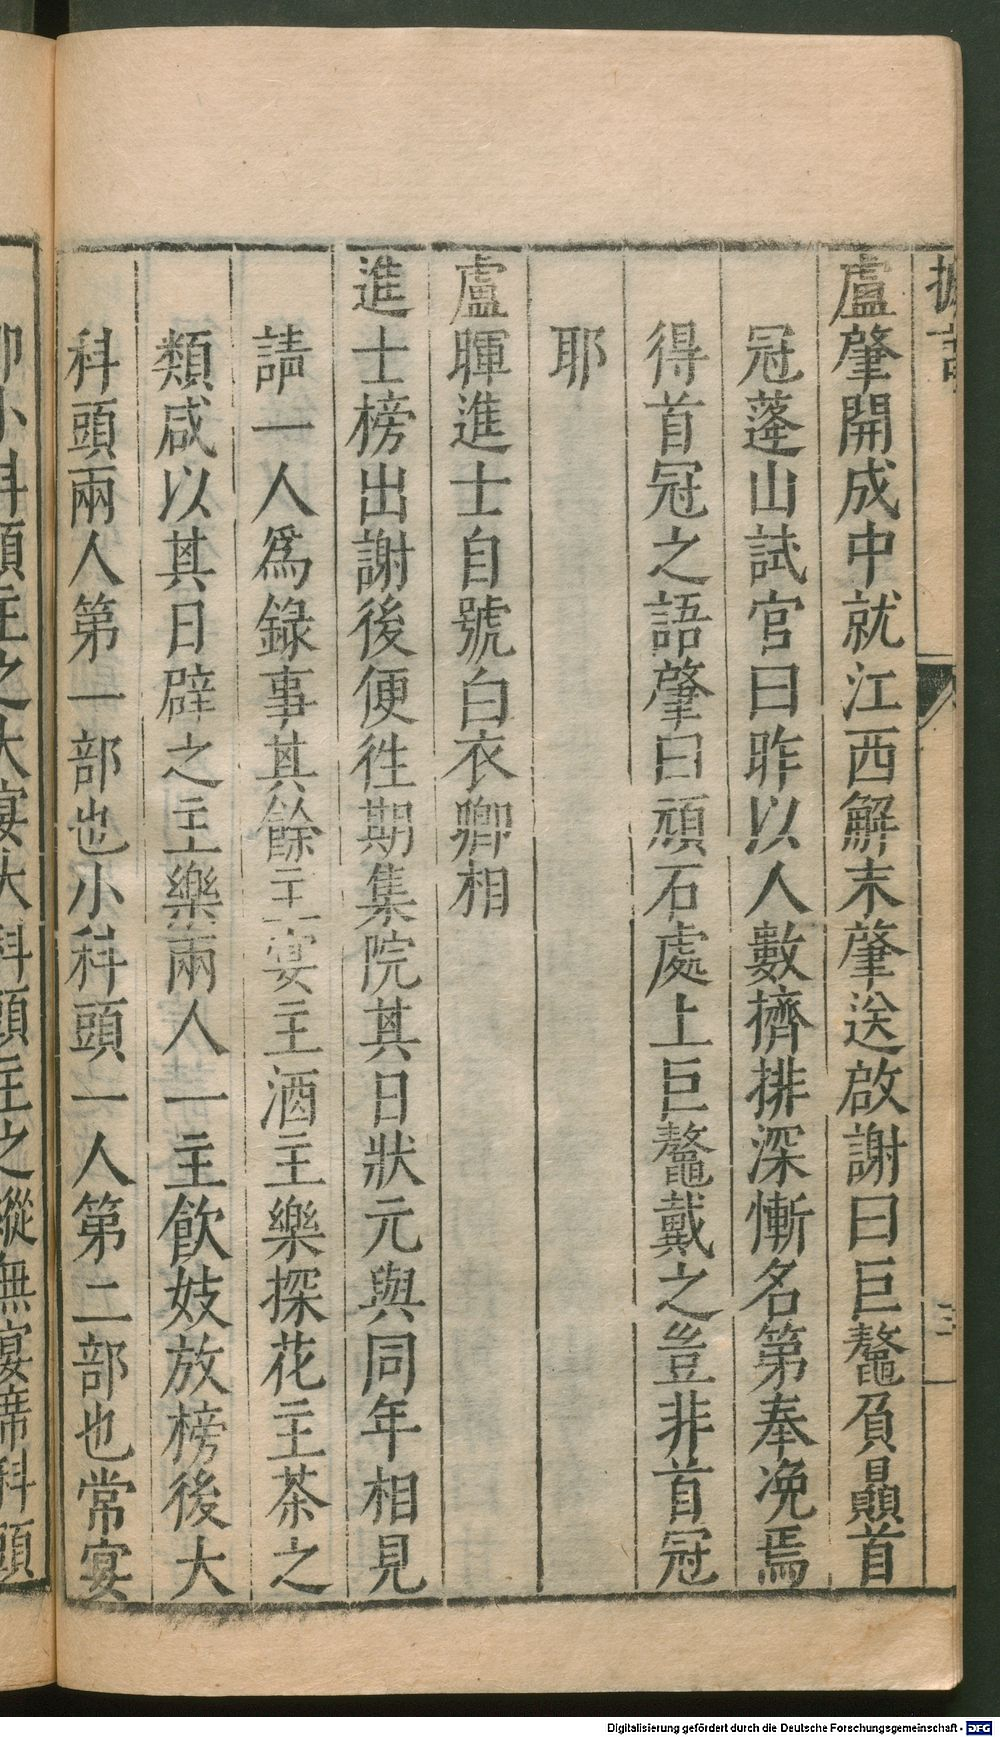 摭言
三
盧肇開成中就江西解末肇送啟謝曰巨鼇屓贔首
冠蓬山試官曰昨以人數擠排深慚名第奉浼焉
得首冠之語肇曰頑石處上巨鼇戴之豈非首冠
耶
盧暉進士自號白衣卿相
進士榜出謝後便徃期集院其日狀元與同年相見
請一人爲錄事其餘主宴主酒主樂探花主茶之
類咸以其日辟之主樂兩人一主飮妓放榜後大
科頭兩人第一部也小科頭一人第二部也常宴
卽小科頭主之大宴大科頭主之縱無宴席科頭
Digitalisierung gefördert durch die Deutsche Forschungsgemeinschaft - DFG